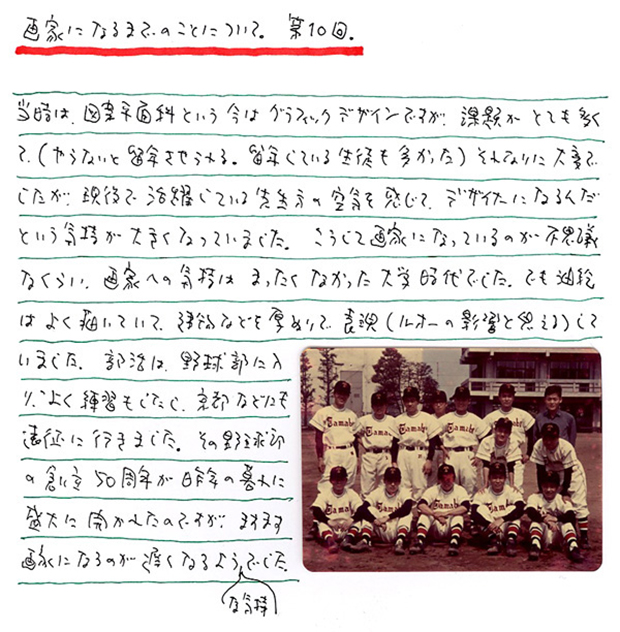 画家になるまでのことについて。 第10回。
当時は、図案平面科という今はグラフィックデザインですが、課題がとても多く
て、(やらないと留年させられる。留年している生徒も多かった)それなりに大変で
したが、現役で活躍している先生方の空気を感じて、デザイナーになるんだ
という気持が大きくなっていました。 こうして画家になっているのが不思議
なくらい、画家への気持はまったくなかった大学時代でした。でも油絵
はよく描いていて、建物などを厚めりで表現(ルオーの影響と思える)して
いました。部活は、野球部に入
り、よく練習もしたし、京都などにも
遠征に行きました。その野球部
の創立50周年が昨年の暮れに
盛大に開かれたのですが、ますます
画家になるのが遅くなるようでした。
な気持
Tamabi
Tamabi
Tamabi
Tamabi